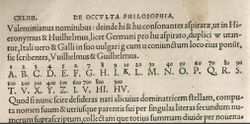 CXLIII. DE OCCVLTA PHILOSOPHIA,
Valentinianus nominibus: deinde hi & hu consonantes aspirata, ut in Hi
eronymus & Huilhelmus, licet Germani pro hu aspirato, duplici w utan
tur, Itali uero & Galli in suo uulgari g cum u coniunctum loco eius ponũt,
sic scribentes, Vuilhelmus & Guilhelmus.
1 2 3 4 5 6 7 8 9 10 20 30 40 50 60 70 80 90
A. B. C. D. E. F. G. H. I. K. L. M. N. O. P. Q. R. S.
100 200 300 400 500 600 700 800 900
T. V. X. Y. Z. I. V. HI. HV.
Quod si nunc scire desideras nati alicuius dominatricem stellam, compu
ta nomen suum & utriusque parentis per singulas literas secundum nu
merum suprascriptum, collectam que totius summam diuide per nouena